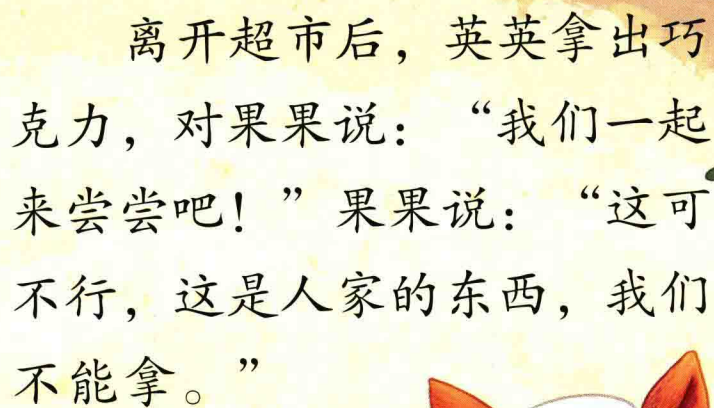 离开超市后，英英拿出巧
克力，对果果说：“我们一起
来尝尝吧！”果果说：“这可
不行，这是人家的东西，我们
不能拿。”